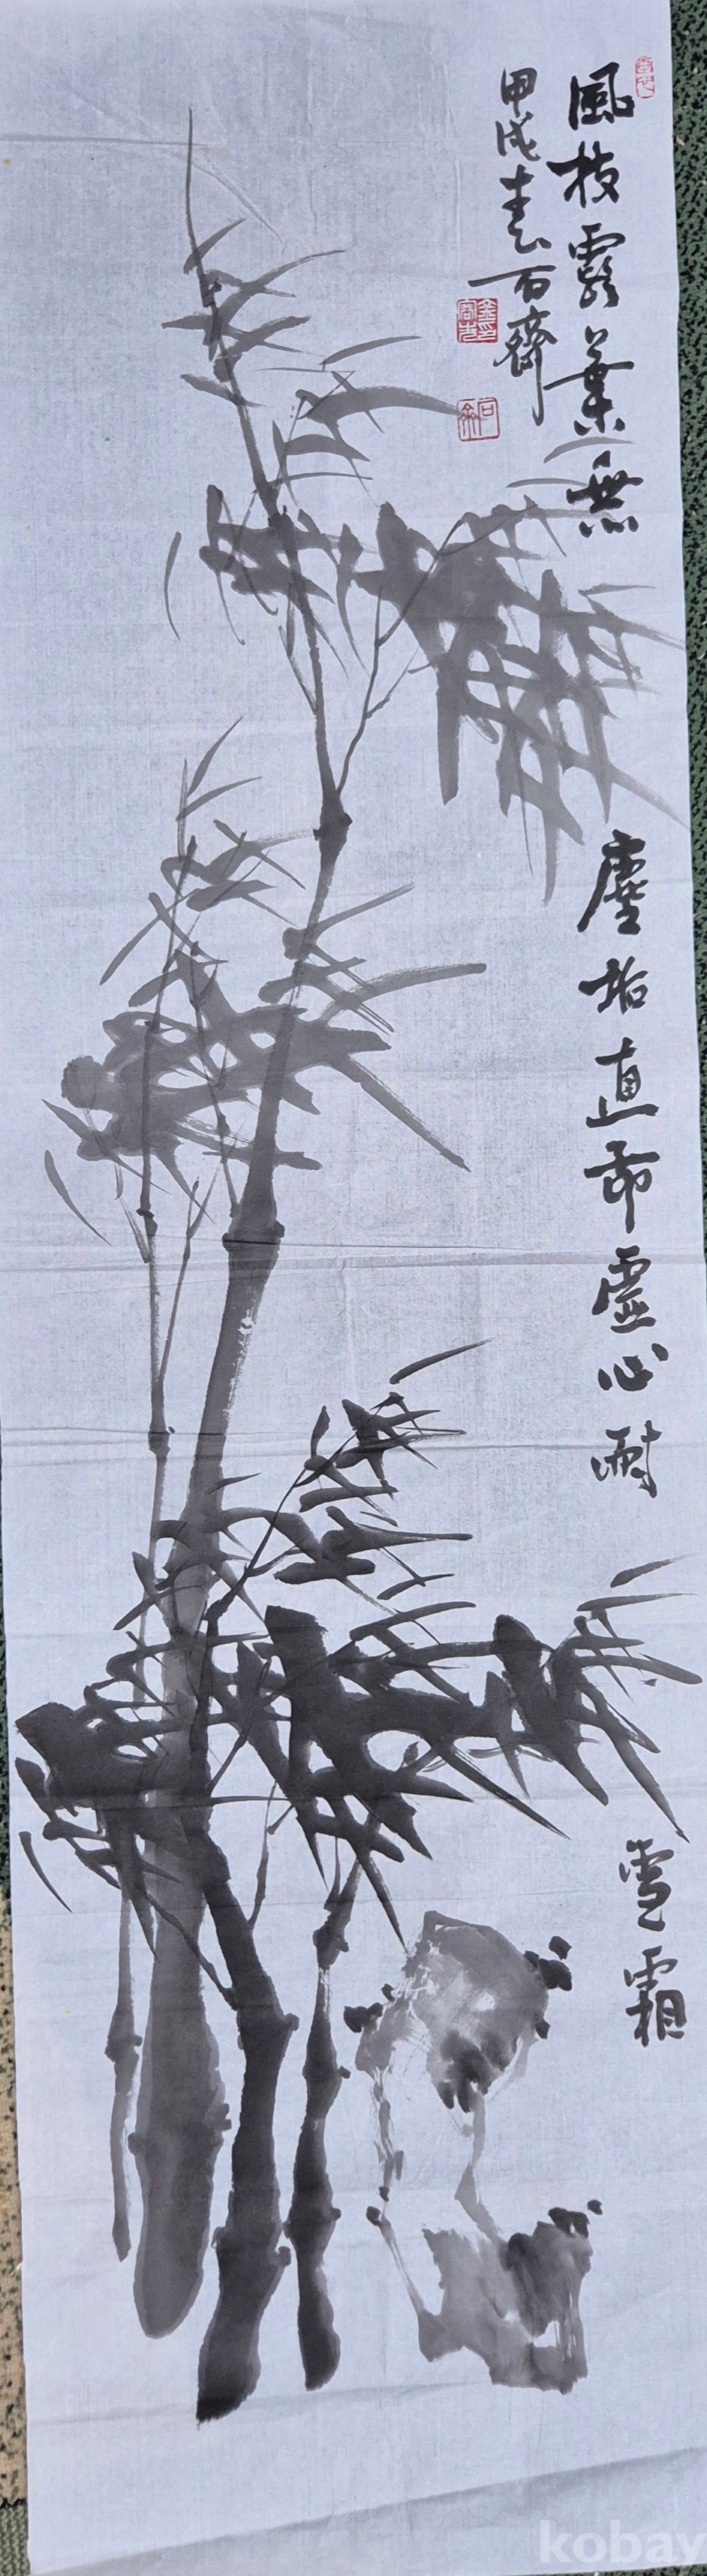 風枝露葉無塵垢直節虛心耐雪霜
甲戌春石齋
kobay